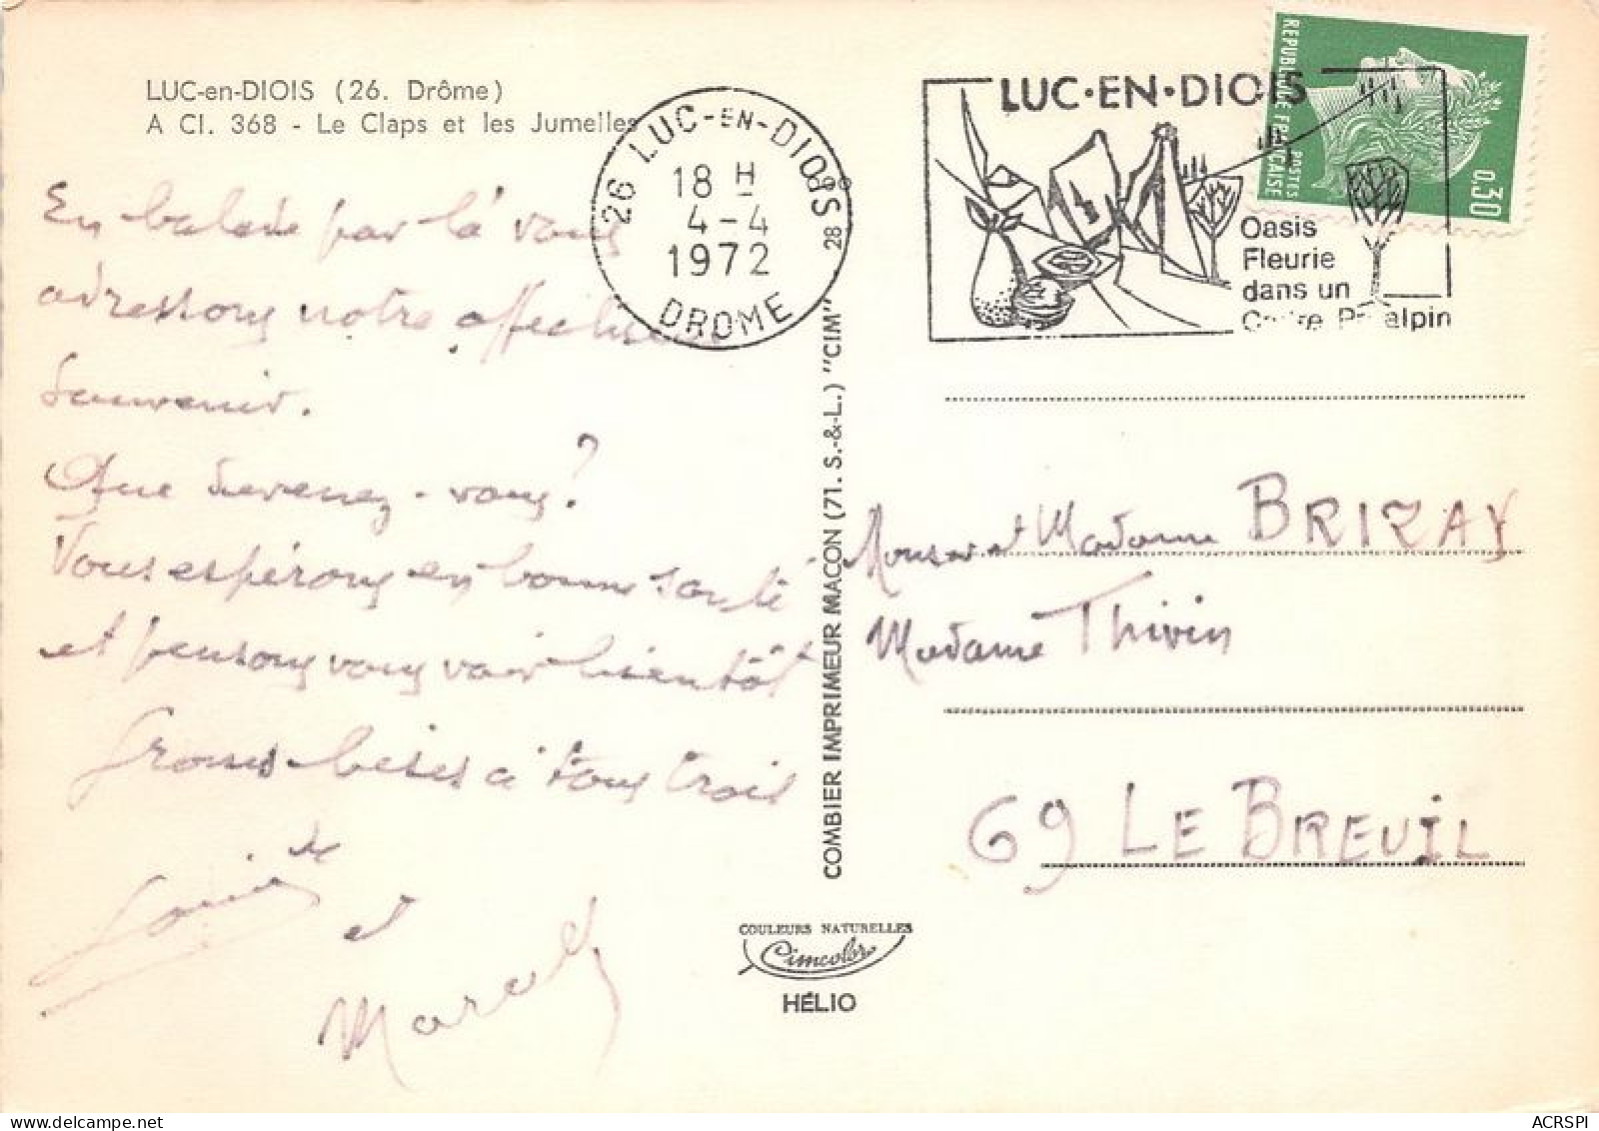 LUC-en-DIOIS (26. Drôme)
A CI. 368 - Le Claps et les Jumelles
En balade par là vous
adressons notre affectueux
souvenir.
Que devenez-vous?
Vous espérons en bonne santé
et pensons vous voir bientôt
Grosses bises à tous trois
et
Marcel
26 LUC-EN-DIOIS
18 H
4-4
1972
DROME
28
COMBIER IMPRIMEUR MACON (71. S.-&-L.) "CIM"
COULEURS NATURELLES
Cimcolor
HÉLIO
LUC·EN·DIOIS
Oasis
Fleurie
dans un
Cadre Préalpin
REPUBLIQUE FRANÇAISE
POSTES
0,30
Monsieur et Madame BRIZAY
Madame Thivin
69 LE BREUIL
delcampe.net
ACRSPI